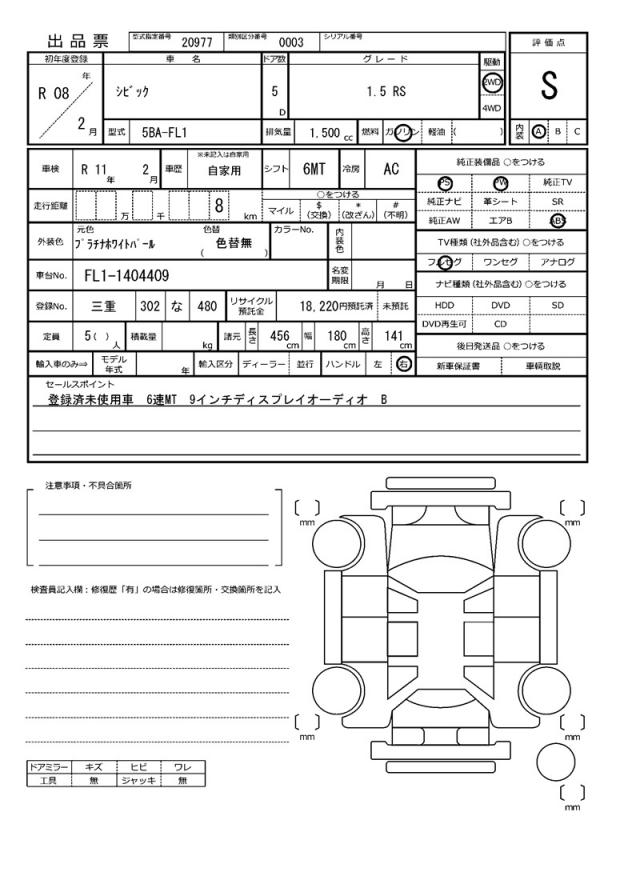 出品票
型式指定番号 20977 類別区分番号 0003 シリアル番号
評価点
S
初年度登録 車名 ドア数 グレード 駆動
R 08 年 2 月
シビック 5 D 1.5 RS 2WD
4WD
型式 5BA-FL1 排気量 1.500 cc 燃料 ガソリン 軽油 ( )
内装 A B C
車検 R 11 年 2 月 車歴 ※未記入は自家用 自家用 シフト 6MT 冷房 AC
純正装備品 ○をつける
PS PW 純正TV
純正ナビ 革シート SR
純正AW エアB ABS
走行距離 万 千 8 km
○をつける
マイル $(交換) *(改ざん) #(不明)
外装色 元色 プラチナホワイトパール 色替 色替無 ( ) カラーNo. 内装色
TV種類 (社外品含む) ○をつける
フルセグ ワンセグ アナログ
車台No. FL1-1404409 名変期限 月 日
ナビ種類 (社外品含む) ○をつける
HDD DVD SD
DVD再生可 CD
登録No. 三重 302 な 480 リサイクル預託金 18,220円預託済 未預託
定員 5 ( ) 人 積載量 kg 諸元 長さ 456 cm 幅 180 cm 高さ 141 cm
後日発送品 ○をつける
新車保証書 車輌取説
輸入車のみ⇒ モデル年式 年 輸入区分 ディーラー 並行 ハンドル 左 右
セールスポイント
登録済未使用車 6速MT 9インチディスプレイオーディオ B
注意事項・不具合箇所
検査員記入欄：修復歴「有」の場合は修復箇所・交換箇所を記入
mm
mm
mm
mm
mm
ドアミラー キズ ヒビ ワレ
工具 無 ジャッキ 無